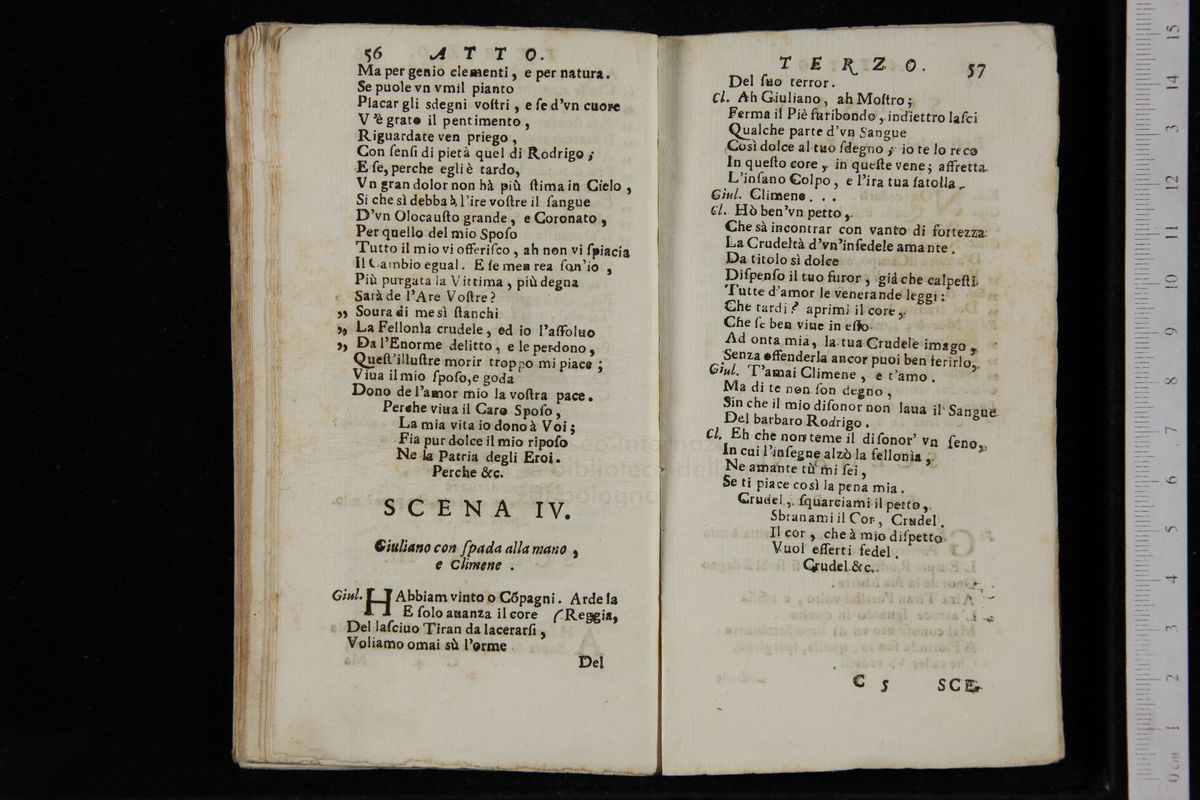 56 ATTO.
Ma per genio clementi, e per natura.
Se puole vn vmil pianto
Placar gli sdegni voſtri, e ſe d'vn cuore
V'è grato il pentimento,
Riguardate ven priego,
Con ſenſi di pietà quel di Rodrigo;
E ſe, perche egli è tardo,
Vn gran dolor non hà più ſtima in Cielo,
Si che sì debba à l'ire voſtre il ſangue
D'vn Olocauſto grande, e Coronato,
Per quello del mio Spoſo
Tutto il mio vi offeriſco, ah non vi ſpiacia
Il Cambio egual. E ſe men rea ſon'io,
Più purgata la Vittima, più degna
Sarà de l'Are Voſtre?
„ Soura di me sì ſtanchi
„ La Fellonìa crudele, ed io l'aſſoluo
„ Da l'Enorme delitto, e le perdono,
Queſt'illuſtre morir troppo mi piace;
Viua il mio ſpoſo, e goda
Dono de l'amor mio la voſtra pace.
Perche viua il Caro Spoſo,
La mia vita io dono à Voi;
Fia pur dolce il mio ripoſo
Ne la Patria degli Eroi.
Perche &c.
SCENA IV.
Giuliano con ſpada alla mano,
e Climene.
Giul. HAbbiam vinto o Cõpagni. Arde la
E ſolo auanza il core (Reggia,
Del laſciuo Tiran da lacerarſi,
Voliamo omai sù l'orme
Del
TERZO. 57
Del ſuo terror.
Cl. Ah Giuliano, ah Moſtro;
Ferma il Piè furibondo, indiettro laſci
Qualche parte d'vn Sangue
Così dolce al tuo ſdegno; io te lo reco
In queſto core, in queſte vene; affretta
L'inſano Colpo, e l'ira tua ſatolla.
Giul. Climene...
Cl. Hò ben'vn petto,
Che sà incontrar con vanto di fortezza
La Crudeltà d'vn'infedele amante.
Da titolo sì dolce
Diſpenſo il tuo furor, già che calpeſti
Tutte d'amor le venerande leggi:
Che tardi? aprimi il core,
Che ſe ben viue in eſſo
Ad onta mia, la tua Crudele imago,
Senza offenderla ancor puoi ben ferirlo,
Giul. T'amai Climene, e t'amo.
Ma di te non ſon degno,
Sin che il mio diſonor non laua il Sangue
Del barbaro Rodrigo.
Cl. Eh che non teme il diſonor' vn ſeno,
In cui l'inſegne alzò la fellonìa,
Ne amante tù mi ſei,
Se ti piace così la pena mia.
Crudel, ſquarciami il petto,
Sbranami il Cor, Crudel.
Il cor, che à mio diſpetto
Vuol eſſerti fedel.
Crudel &c.
C 5 SCE-